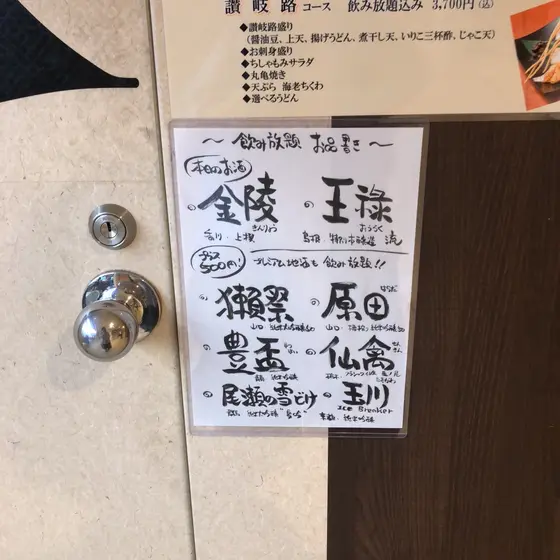 讃岐路 コース 飲み放題込み 3,700円(込)
◆讃岐路盛り
(醤油豆、上天、揚げうどん、煮干し天、いりこ三杯酢、じゃこ天)
◆お刺身盛り
◆ちしゃもみサラダ
◆丸亀焼き
◆天ぷら 海老ちくわ
◆選べるうどん
〜 飲み放題 お品書き 〜
本日のお酒
金陵 王禄
きんりょう おうろく
香川・上撰
プラス500円!
プレミアム地酒も飲み放題!!
獺祭 原田
山口 山口
豊盃 仙禽
せんきん
尾瀬の雪どけ 玉川
Ice Breaker